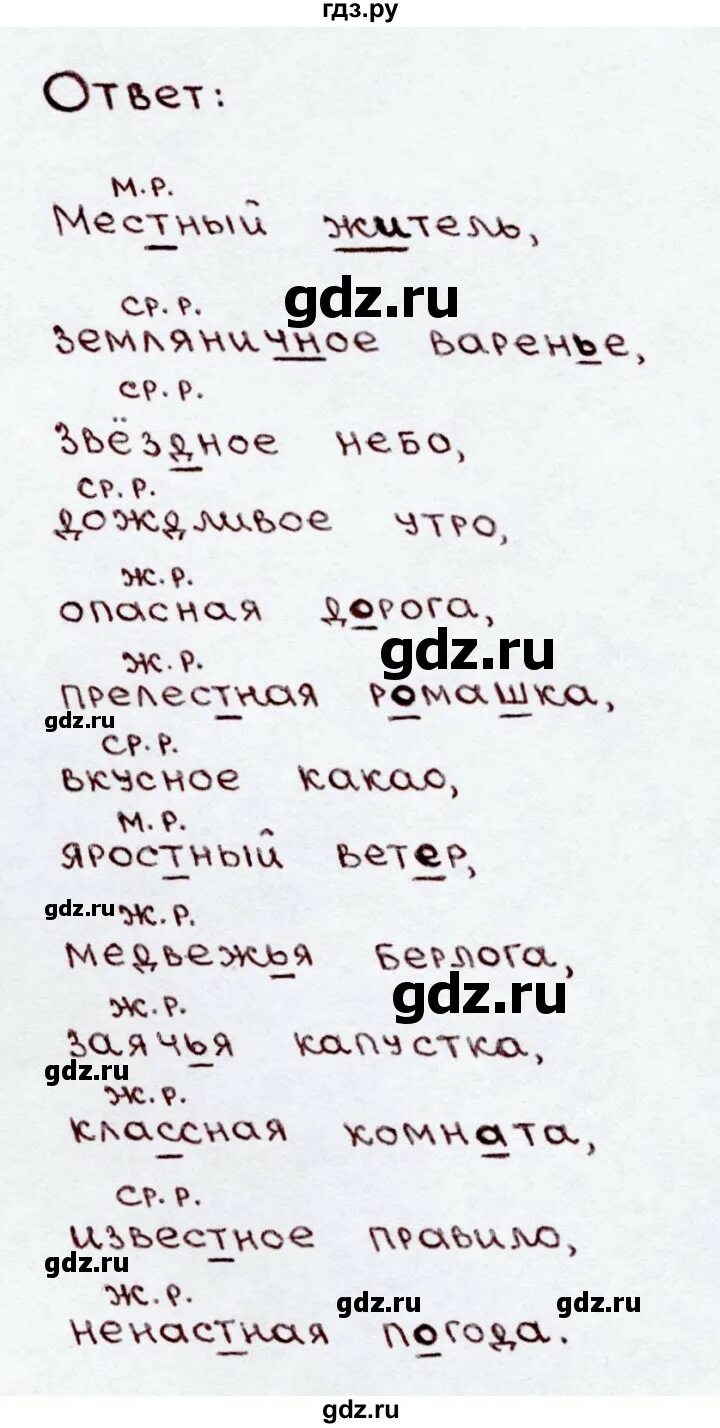 гдз.ру
Ответ:
м.р.
Местный житель,
gdz.ru
ср. р.
земляничное варенье,
ср. р.
звёздное небо,
ср. р.
дождливое утро,
ж. р.
опасная дорога,
gdz.ru
ж. р.
прелестная ромашка,
gdz.ru
ср. р.
вкусное какао,
м. р.
яростный ветер,
gdz.ru
ж. р.
медвежья берлога,
gdz.ru
ж. р.
заячья капустка,
gdz.ru
ж. р.
классная комната,
ср. р.
известное правило,
gdz.ru
ж. р.
gdz.ru gdz.ru
ненастная погода.
gdz.ru